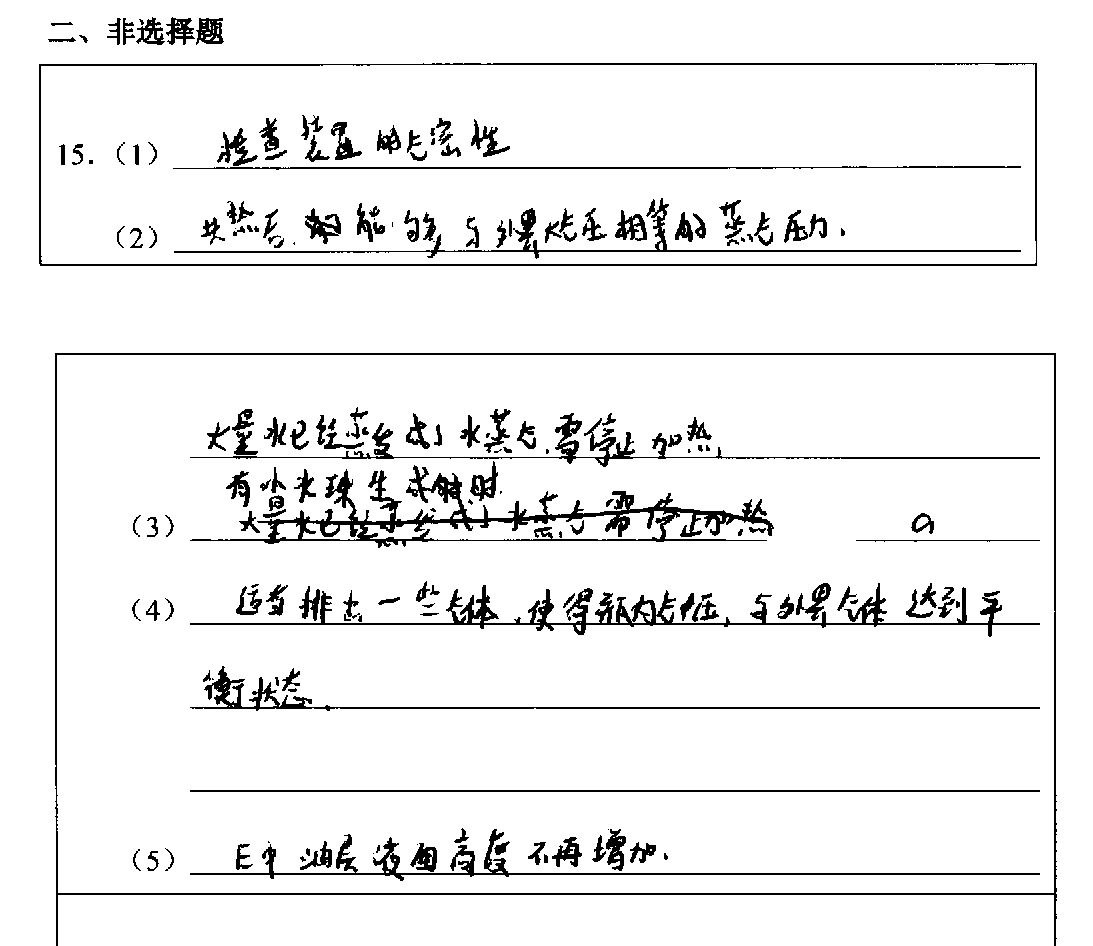 二、非选择题
15.（1）检查装置的气密性
（2）共热后，能够与外界大气压相等的蒸气压力．
大量水已经蒸发成了水蒸气，需停止加热，
有小水珠生成时
（3） a
（4）适当排出一些气体，使得瓶内气压，与外界气体达到平
衡状态．
（5）E中油层液面高度不再增加．